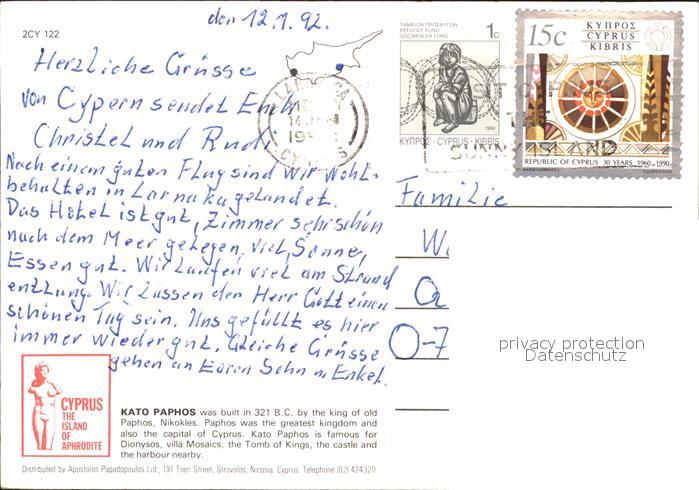 2CY 122
den 12.1.92.
Herzliche Grüsse
von Cypern sendet Euch
Christel und Rudi
Nach einem guten Flug sind wir wohl-
behalten in Larnaka gelandet.
Das Hotel ist gut, Zimmer sehr schön
nach dem Meer gelegen, viel Sonne,
Essen gut. Wir laufen viel am Strand
entlang. Wir lassen den Herr Gott einen
schönen Tag sein. Uns gefällt es hier
immer wieder gut. Gleiche Grüsse
gehen an Euren Sohn u. Enkel.
CYPRUS
THE
ISLAND
OF
APHRODITE
KATO PAPHOS was built in 321 B.C. by the king of old
Paphos, Nikokles. Paphos was the greatest kingdom and
also the capital of Cyprus. Kato Paphos is famous for
Dionysos, villa Mosaics, the Tomb of Kings, the castle and
the harbour nearby.
Distributed by Apostolos Papadopoulos Ltd., 191 Tseri Street, Strovolos, Nicosia, Cyprus. Telephone (02) 424328
ΤΑΜΕΙΟΝ ΠΡΟΣΦΥΓΩΝ
REFUGEE FUND
GÖÇMENLER FONU
1c
1990
ΚΥΠΡΟΣ·CYPRUS·KIBRIS
15c
ΚΥΠΡΟΣ
CYPRUS
KIBRIS
REPUBLIC OF CYPRUS 30 YEARS 1960-1990
LARNACA
CYPRUS
Familie
W
O-7
privacy protection
Datenschutz